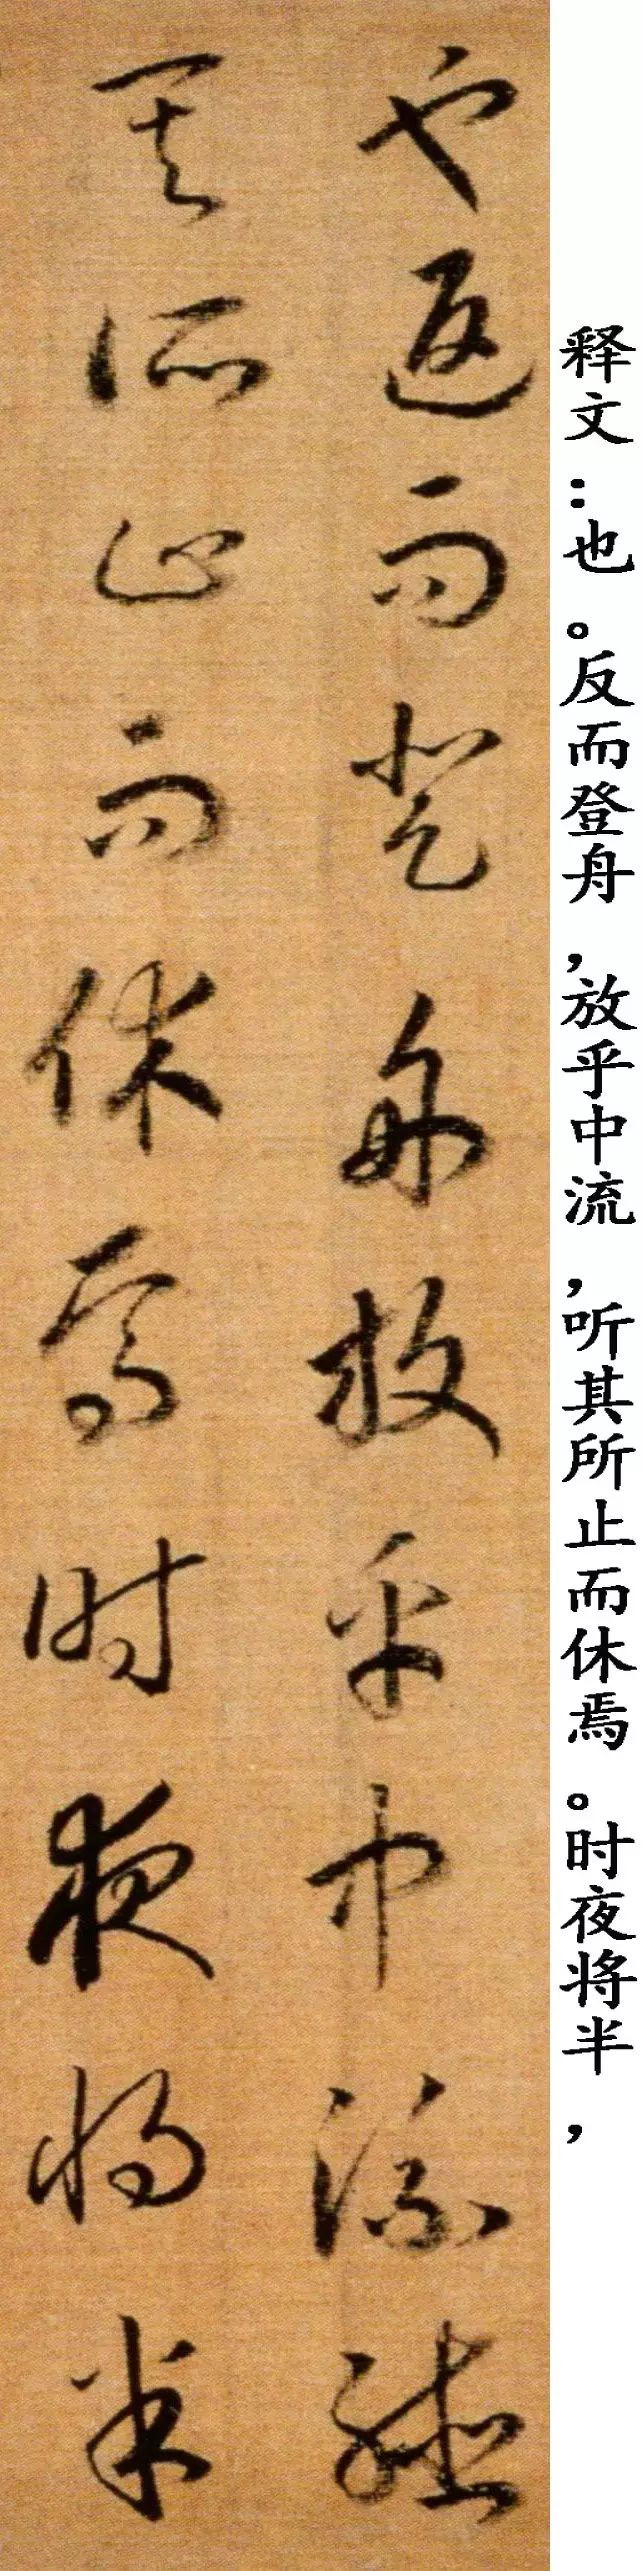 也返而登舟放乎中流聽
其所止而休焉时夜将半
释文：也。反而登舟，放乎中流，听其所止而休焉。时夜将半，